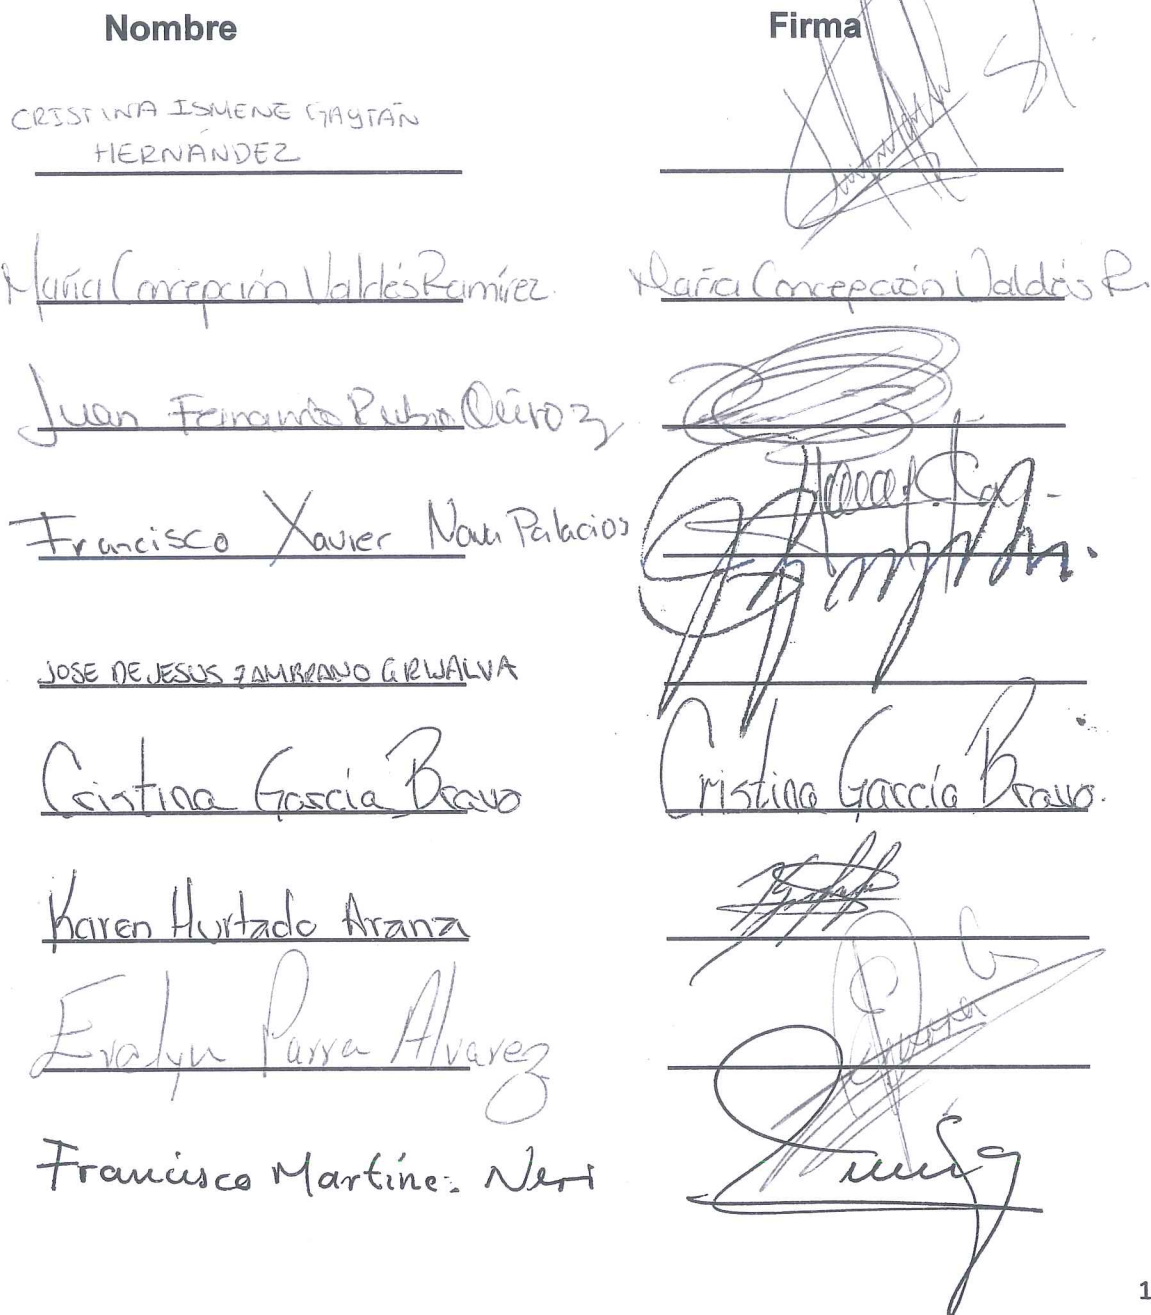 Nombre Firma
CRISTINA ISMENE GAYTÁN
HERNÁNDEZ
María Concepción Valdés Ramírez María Concepción Valdés R.
Juan Fernando Rubio Quiroz
Francisco Xavier Nava Palacios
JOSE DE JESUS ZAMBRANO GRIJALVA
Cristina García Bravo Cristina García Bravo.
Karen Hurtado Arana
Evalyn Parra Alvarez
Francisco Martínez Neri
1